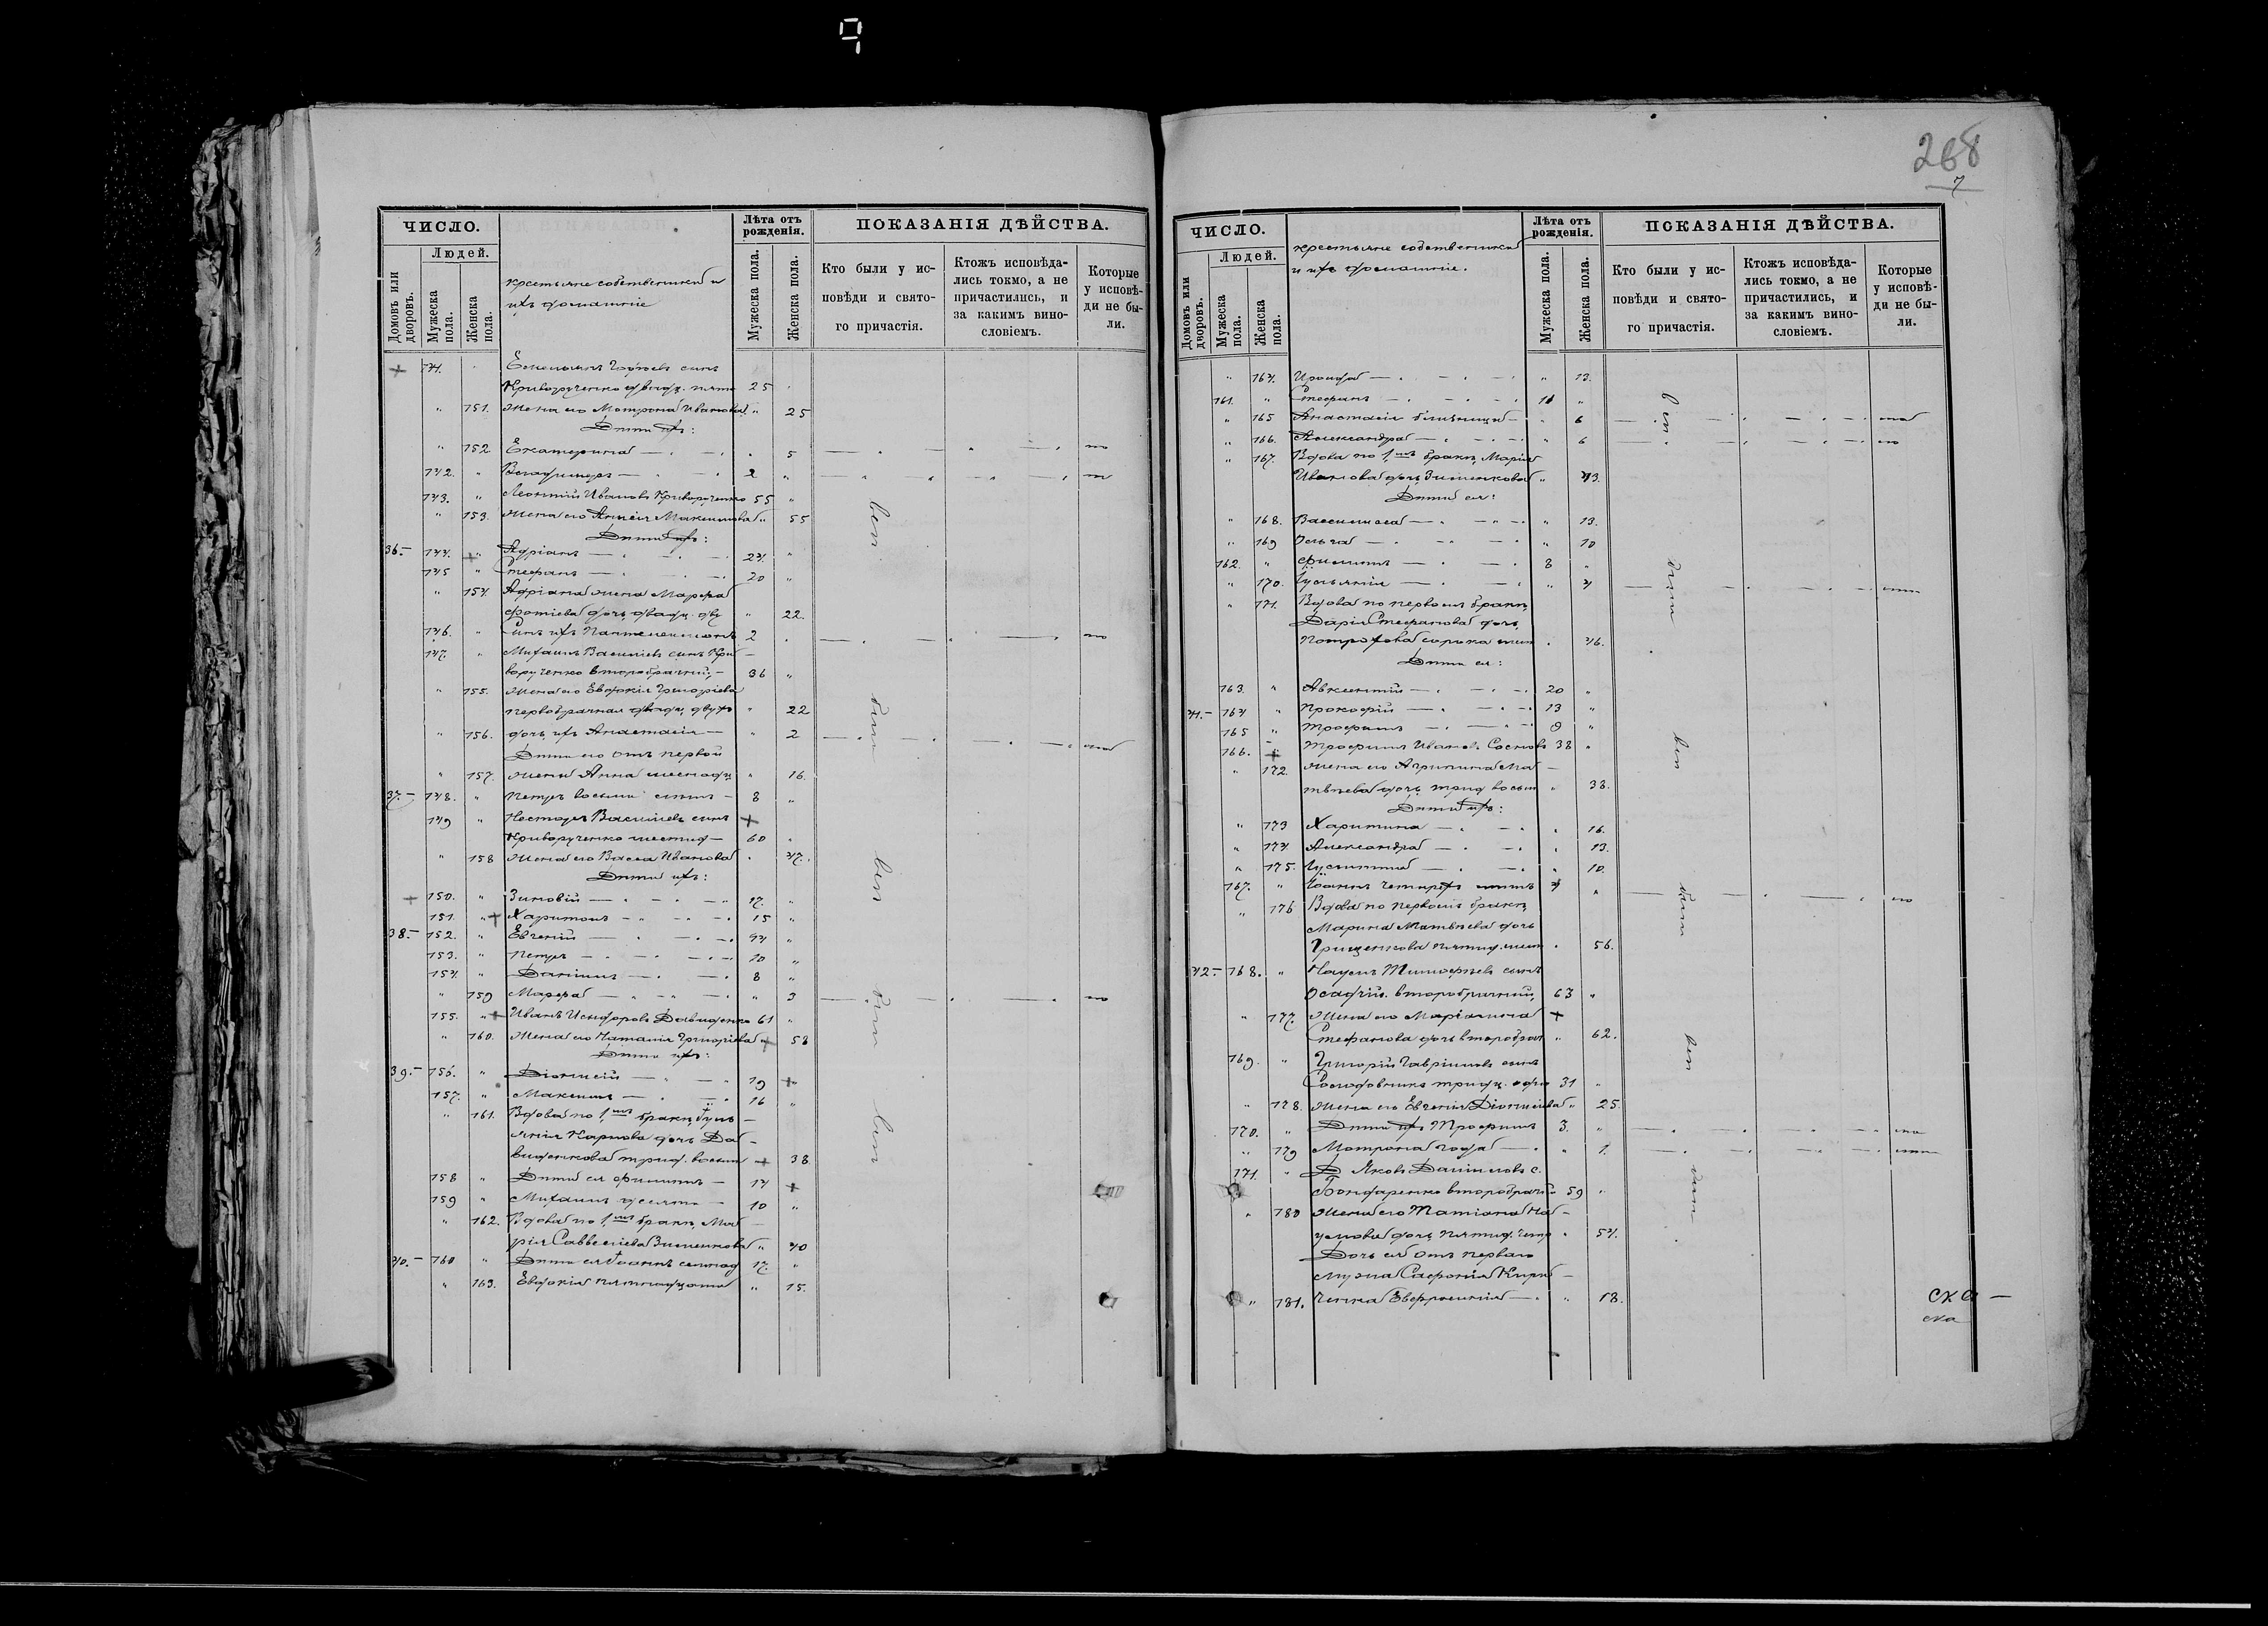 268
7
ЧИСЛО.
Людей.
Домовъ или дворовъ.
Мужеска пола.
Женска пола.
крестьяне собственники и
ихъ домашніе
Лѣта отъ рожденія.
Мужеска пола.
Женска пола.
ПОКАЗАНІЯ ДѢЙСТВА.
Кто были у ис-
повѣди и свято-
го причастія.
Ктожъ исповѣда-
лись токмо, а не
причастились, и
за какимъ вино-
словіемъ.
Которые
у исповѣ-
ди не бы-
ли.
141. Емельянъ сынъ
Криворученко двадц. пять 25
151. Жена его Матрона Иванова 25
Дѣти ихъ:
152. Екатерина 5
142. Владимиръ 2
143. Леонтій Ивановъ Криворученко 55
153. Жена его Максимова 55
Дѣти ихъ:
36. 144. Адріанъ 24.
145 Стефанъ 20
154. Адріана жена Марфа
Фотіева дочь двадц. дву 22.
146. Сынъ ихъ Пантелеимонъ 2
147. Михаилъ Васильевъ сынъ Кри-
ворученко второбрачный 36
155. Жена его Евдокія Григоріева
первобрачная двадц. двухъ 22
156. дочь ихъ Анастасія 2
Дѣти его отъ первой
157. жены Анна шеснадц 16.
37. 148. Петръ восьми лѣтъ 8
149 Несторъ Васильевъ сынъ
Криворученко шестид 60
158 Жена его Васса Иванова 47.
Дѣти ихъ:
150. Зиновій 17.
151. Харитонъ 15
38. 152. Евгеній 14
153. Петръ 10
154. Даніилъ 8
159 Марфа 3
155. Иванъ Исидоровъ Давиденко 61
160. Жена его Наталія Григоріева 58
Дѣти ихъ:
39. 156. Діонисій 19
157. Максимъ 16
161. Вдова по 1мъ бракѣ Іуль-
янія Карпова дочь Да-
виденкова трид. восьми 38
158 Дѣти ея Филиппъ 14
159 Михаилъ десяти 10
162. Вдова по 1мъ бракѣ Ма-
рія Савеліева Зименкова 40
40. 160 Дѣти ея Іоаннъ семнад 17.
163. Евдокія пятнадцати 15.
вси были вси были вси
ЧИСЛО.
Людей.
Домовъ или дворовъ.
Мужеска пола.
Женска пола.
крестьяне собственники
и ихъ домашніе.
Лѣта отъ рожденія.
Мужеска пола.
Женска пола.
ПОКАЗАНІЯ ДѢЙСТВА.
Кто были у ис-
повѣди и свято-
го причастія.
Ктожъ исповѣда-
лись токмо, а не
причастились, и
за какимъ вино-
словіемъ.
Которые
у исповѣ-
ди не бы-
ли.
164. Ираида 13.
161. Стефанъ 11
165 Анастасія близнецы 6
166. Александра 6
167. Вдова по 1мъ бракѣ Марія
Иванова дочь Зименкова 43.
Дѣти ея:
168. Василиса 13.
169 Ольга 10
162. Филиппъ 8
170. Іульянія 4
171. Вдова по первомъ бракѣ
Дарія Стефанова дочь
сорока шти 46.
Дѣти ея:
163. Авксентій 20
41. 164 Прокофій 13
165 Трофимъ 9
166. Трофимъ Иванов. Сосновъ 38
172. Жена его Агрипина Ма-
твѣева дочь трид восьми 38.
Дѣти ихъ:
173 Харитина 16.
174 Александра 13.
175. Іустина 10.
167. Іоаннъ четырехъ лѣтъ 4
176 Вдова по первомъ бракѣ
Марина Матвѣева дочь
Грищенкова пятид. шти 56.
42. 168. Наумъ Тимофѣевъ сынъ
Осадчій второбрачный 63
177. Жена его Маріамна
Стефанова дочь второбрач 62.
169. Григорій Гавріиловъ сынъ
Солодовникъ тридц. одно 31
178. Жена его Евгенія Діонисіева 25
170. Дѣти ихъ Трофимъ 3.
179 Матрона года 1.
171. Яковъ Даниловъ с.
Бондаренко второбрачн 59
180 Жена его Татіана На-
умова дочь пятид. четы 54.
Дочь ея отъ перваго
мужа Сафонія Кири-
181. ченка Евфросинія 18.
вси были вси были вси были
ска-
ска